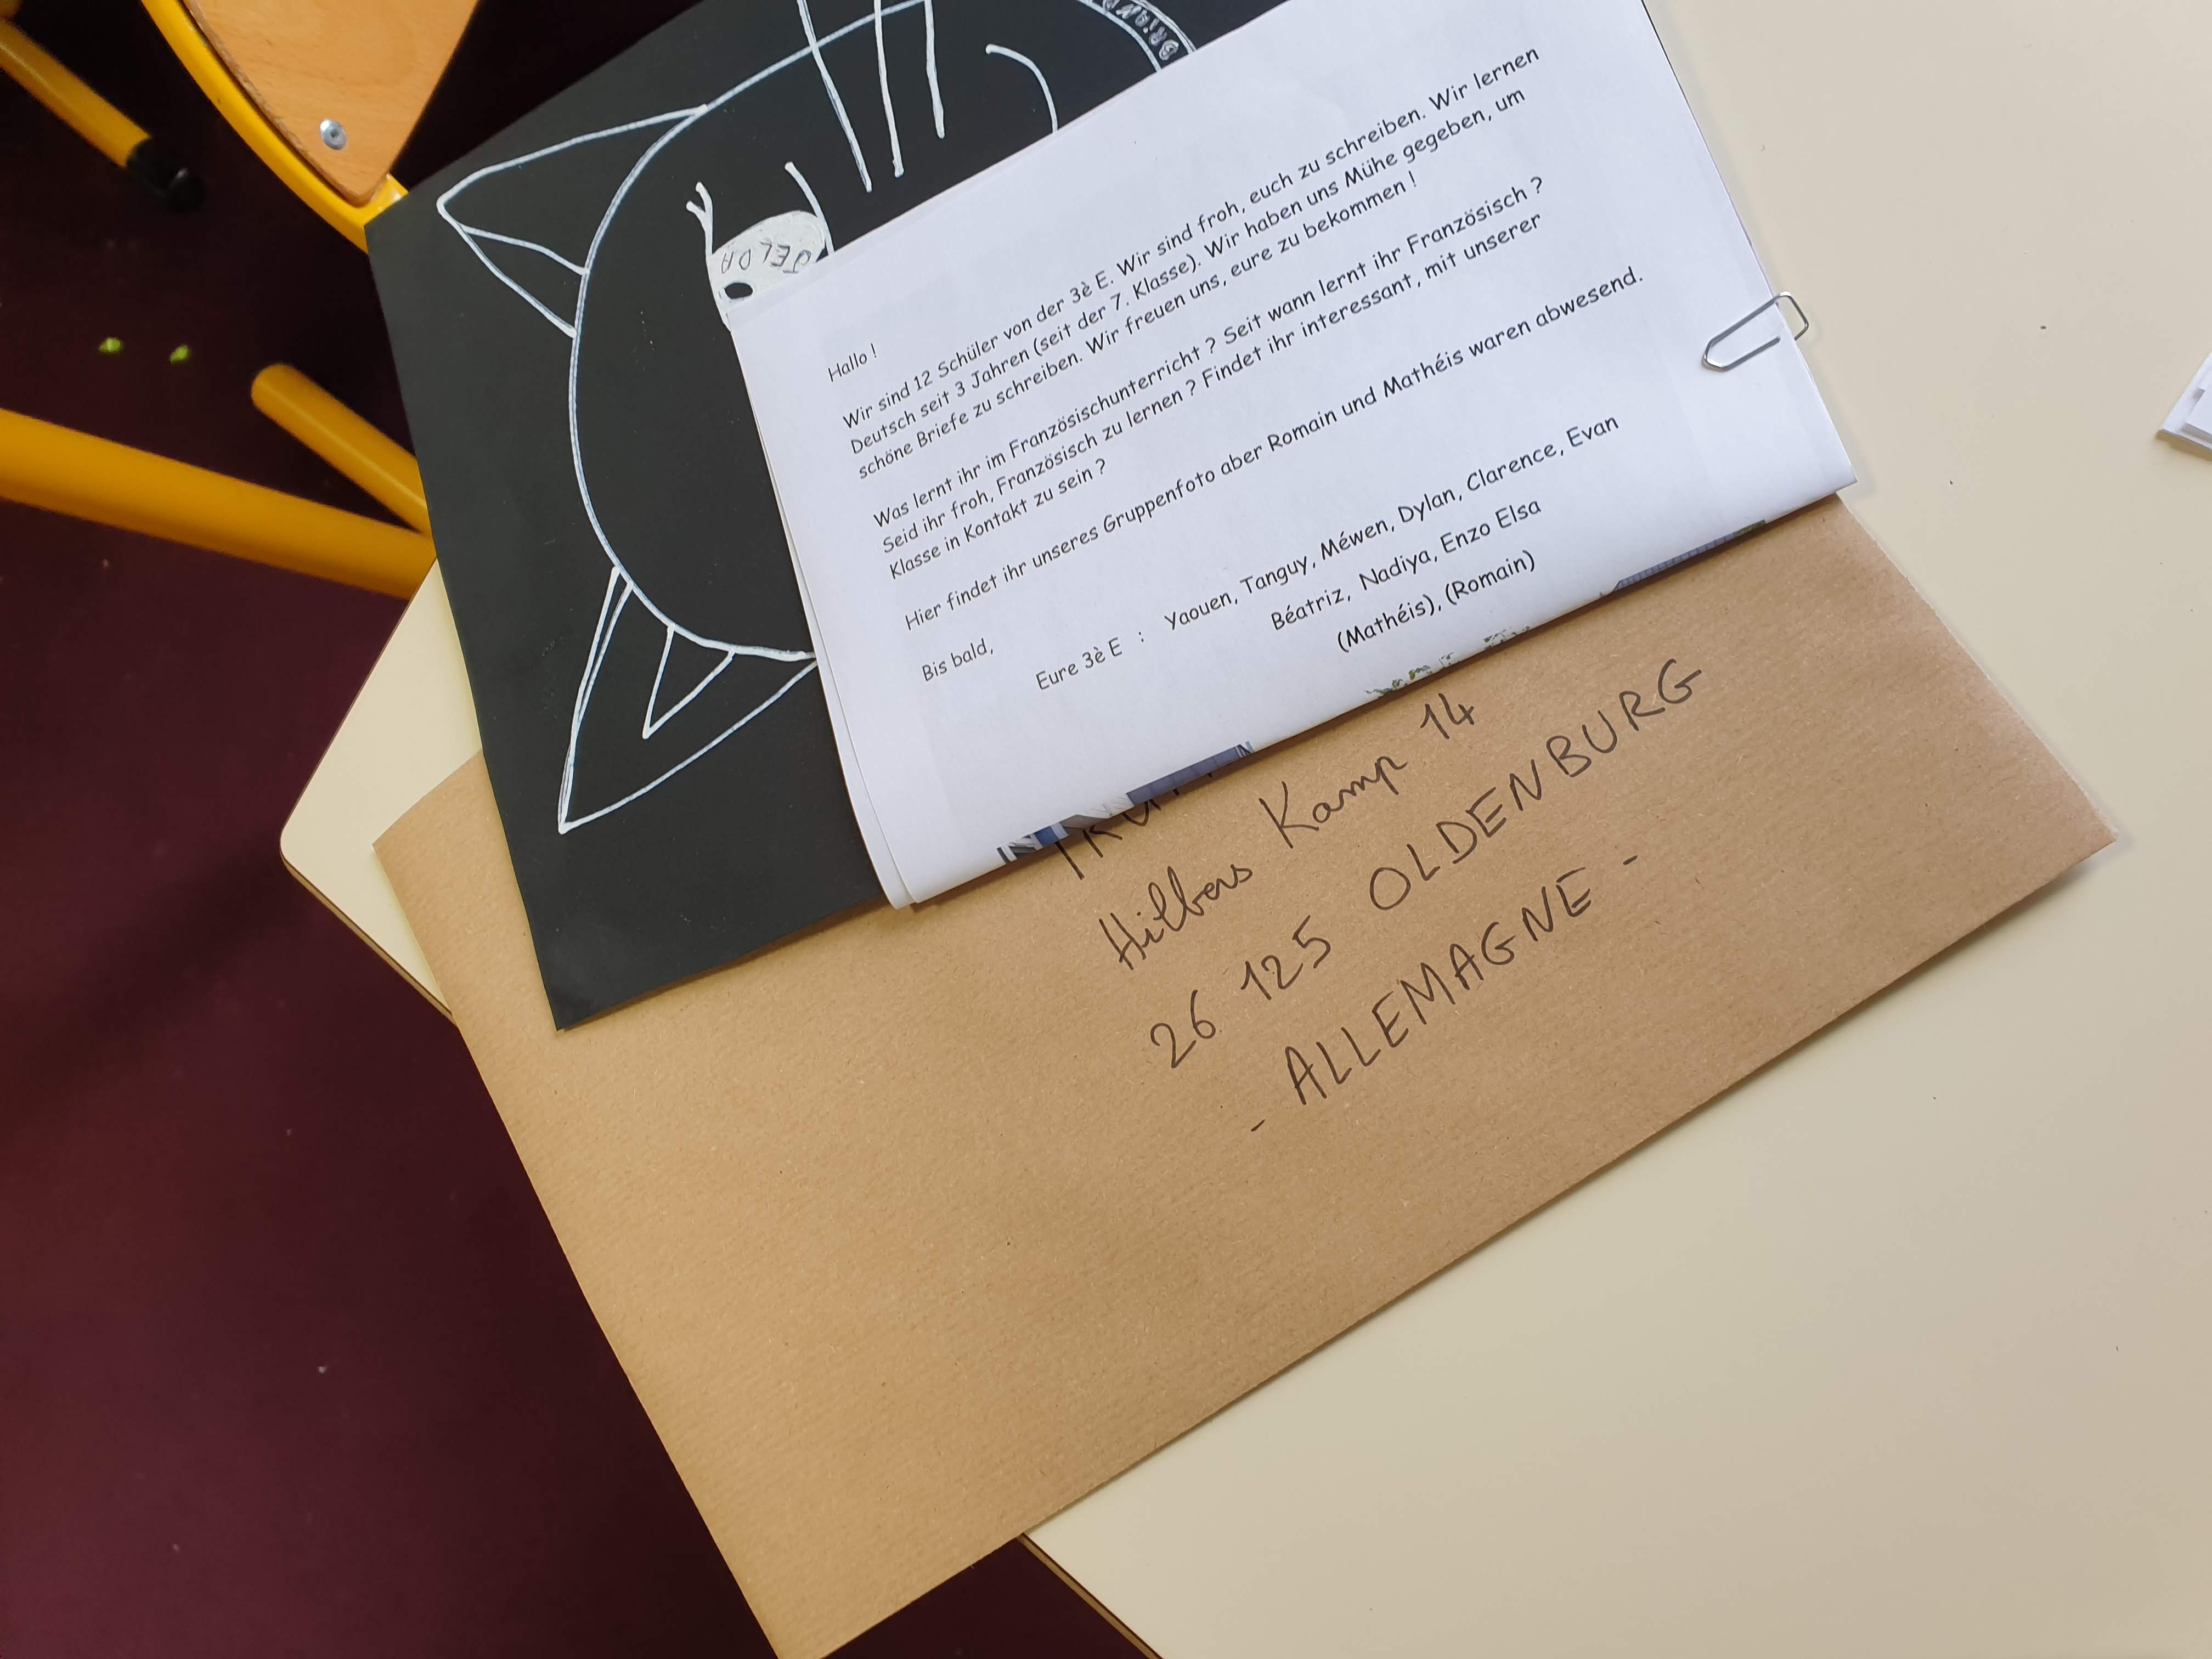 Hallo !
Wir sind 12 Schüler von der 3è E. Wir sind froh, euch zu schreiben. Wir lernen
Deutsch seit 3 Jahren (seit der 7. Klasse). Wir haben uns Mühe gegeben, um
schöne Briefe zu schreiben. Wir freuen uns, eure zu bekommen !
Was lernt ihr im Französischunterricht ? Seit wann lernt ihr Französisch ?
Seid ihr froh, Französisch zu lernen ? Findet ihr interessant, mit unserer
Klasse in Kontakt zu sein ?
Hier findet ihr unseres Gruppenfoto aber Romain und Mathéis waren abwesend.
Bis bald,
Eure 3è E : Yaouen, Tanguy, Méwen, Dylan, Clarence, Evan
Béatriz, Nadiya, Enzo Elsa
(Mathéis), (Romain)
Hilbers Kamp 14
26 125 OLDENBURG
- ALLEMAGNE -